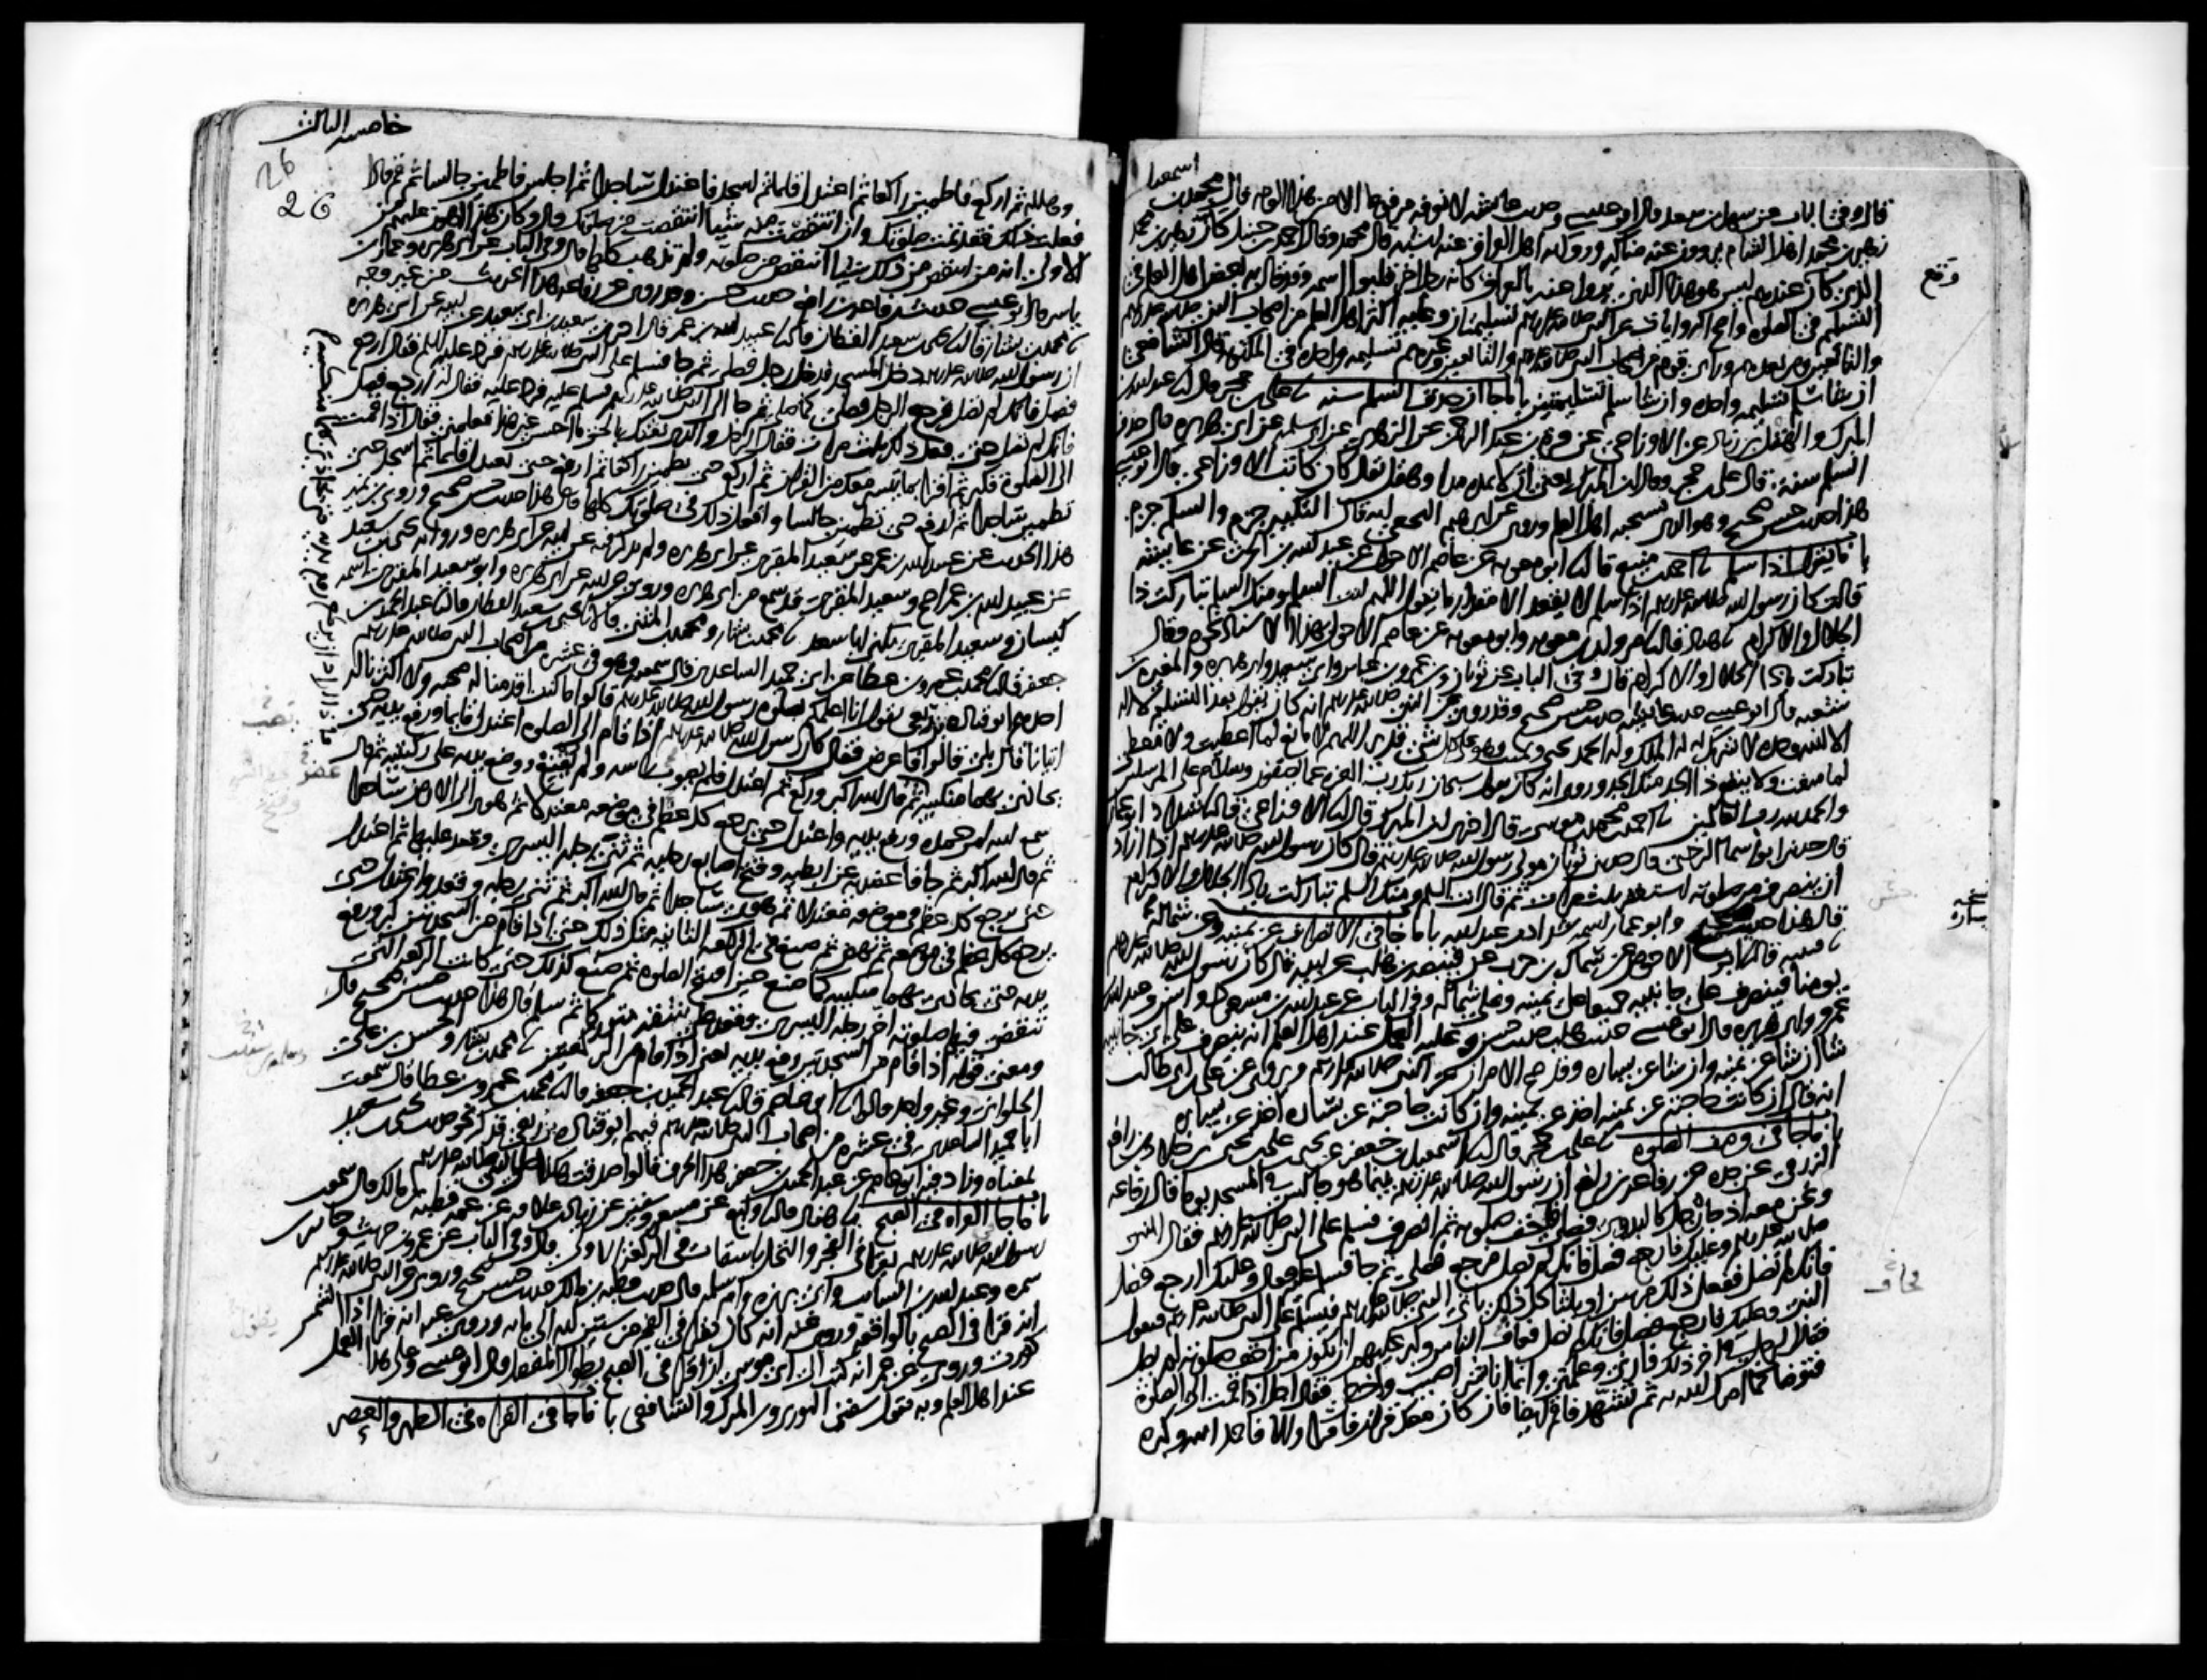 قال وفي الباب عن سهل بن سعد قال ابو عيسى وحديث عائشة لا نعرفه مرفوعا الا من هذا الوجه قال محمد بن اسمعيل
زهير بن محمد اهل الشام يروون عنه مناكير ورواية اهل العراق عنه اشبه قال محمد وقال احمد بن حنبل كان زهير بن محمد
الذي كان عندهم ليس هو هذا الذي يروا عنه بالعراق كانه رجل اخر قلبوا اسمه وقد قال به بعض اهل العلم في
وقع
التسليم في الصلوة واصح الروايات عن النبي صلى الله عليه وسلم تسليمتان وعليه اكثر اهل العلم من اصحاب النبي صلى الله عليه وسلم
والتابعين ومن بعدهم وراى قوم من اصحاب النبي صلى الله عليه وسلم والتابعين وغيرهم تسليمة واحدة في المكتوبة قال الشافعي
ان شا سلم تسليمة واحدة وان شا سلم تسليمتين باب ما جا ان حذف السلم سنة نا علي بن حجر قال نا عبد الله بن
المبرك والهقل بن زياد عن الاوزاعي عن قرة بن عبد الرحمن عن الزهري عن ابي سلمة عن ابي هريرة قال حذف
السلم سنة قال علي بن حجر وقال ابن المبرك يعني ان لا تمده مدا وهقل يقال كان كاتب الاوزاعي قال ابو عيسى
هذا حديث حسن صحيح وهو الذي يستحبه اهل العلم وروي عن ابرهيم النخعي انه قال التكبير جزم والسلم جزم
باب ما يقول اذا سلم نا احمد بن منيع قال نا ابو معوية عن عاصم الاحول عن عبد الله بن الحرث عن عائشة
قالت كان رسول الله صلى الله عليه وسلم اذا سلم لا يقعد الا مقدار ما يقول اللهم انت السلم ومنك السلم تباركت ذا
الجلال والاكرام نا هناد قال نا مروان بن معوية وابو معوية عن عاصم الاحول بهذا الاسناد نحوه وقال
تباركت يا ذا الجلال والاكرام قال وفي الباب عن ثوبان وبن عمر وبن عباس وابي سعيد وابي هريرة والمغيرة بن
شعبة قال ابو عيسى حديث عائشة حديث حسن صحيح وقد روي عن النبي صلى الله عليه وسلم انه كان يقول بعد التسليم لا اله
الا الله وحده لا شريك له له الملك وله الحمد يحيي ويميت وهو على كل شي قدير اللهم لا مانع لما اعطيت ولا معطي
لما منعت ولا ينفع ذا الجد منك الجد وروي انه كان يقول سبحان ربك رب العزة عما يصفون وسلام على المرسلين
والحمد لله رب العالمين نا احمد بن محمد بن موسى قال اخبرني ابن المبرك قال نا الاوزاعي قال نا شداد ابو عمار
قال حدثني ابو اسما الرحبي قال حدثني ثوبان مولى رسول الله صلى الله عليه وسلم قال كان رسول الله صلى الله عليه وسلم اذا اراد
ان ينصرف من صلوته استغفر ثلث مرات ثم قال انت السلم ومنك السلم تباركت يا ذا الجلال والاكرام
قال هذا حديث صحيح وابو عمار اسمه شداد بن عبد الله باب ما جا في الانصراف عن يمينه وعن شماله
نا قتيبة قال نا ابو الاحوص عن سماك بن حرب عن قبيصة بن هلب عن ابيه قال كان رسول الله صلى الله عليه وسلم
يومنا فينصرف على جانبيه جميعا على يمينه وعلى شماله وفي الباب عن عبد الله بن مسعود وانس وعبد الله بن
عمرو وابي هريرة قال ابو عيسى حديث هلب حديث حسن وعليه العمل عند اهل العلم انه ينصرف على اي جانبيه
شا ان شا عن يمينه وان شا عن يساره وقد صح الامران عن النبي صلى الله عليه وسلم ويروى عن علي بن ابي طالب
انه قال ان كانت حاجته عن يمينه اخذ عن يمينه وان كانت حاجته عن يساره اخذ عن يساره
باب ما جا في وصف الصلوة نا علي بن حجر قال نا اسمعيل بن جعفر عن يحيى بن علي بن يحيى بن خلاد بن رافع
الزرقي عن جده عن رفاعة بن رافع ان رسول الله صلى الله عليه وسلم بينما هو جالس في المسجد يوما قال رفاعة
ونحن معه اذ جاه رجل كالبدوي فصلى فاخف صلوته ثم انصرف فسلم على النبي صلى الله عليه وسلم فقال النبي
صلى الله عليه وسلم وعليك فارجع فصل فانك لم تصل فرجع فصلى ثم جا فسلم عليه فقال وعليك ارجع فصل
فانك لم تصل ففعل ذلك مرتين او ثلثا كل ذلك ياتي النبي صلى الله عليه وسلم فيسلم على النبي صلى الله عليه وسلم فيقول
النبي وعليك فارجع فصل فانك لم تصل فخاف الناس وكبر عليهم ان يكون من اخف صلوته لم يصل
فقال الرجل في اخر ذلك فارني وعلمني وانما انا بشر اصيب واخطي فقال اجل اذا قمت الى الصلوة
فتوضا كما امرك الله به ثم تشهد فاقم ايضا فان كان معك قران فاقرا والا فاحمد الله وكبره
خامسة الثالث
26
26
وهلله ثم اركع فاطمئن راكعا ثم اعتدل قائما ثم اسجد فاعتدل ساجدا ثم اجلس فاطمئن جالسا ثم قم فاذا
فعلت ذلك فقد تمت صلوتك وان انتقصت منه شيئا انتقصت من صلوتك قال وكان هذا اهون عليهم من
الاولى انه من انتقص من ذلك شيئا انتقص من صلوته ولم تذهب كلها قال وفي الباب عن ابي هريرة وعمار بن
ياسر قال ابو عيسى حديث رفاعة بن رافع حديث حسن وقد روي عن رفاعة هذا الحديث من غير وجه
نا محمد بن بشار قال نا يحيى بن سعيد القطان قال نا عبيد الله بن عمر قال اخبرني سعيد بن ابي سعيد عن ابيه عن ابي هريرة
ان رسول الله صلى الله عليه وسلم دخل المسجد فدخل رجل فصلى ثم جا فسلم على النبي صلى الله عليه وسلم فرد عليه السلم فقال ارجع
فصل فانك لم تصل فرجع الرجل فصلى كما صلى ثم جا الى النبي صلى الله عليه وسلم فسلم عليه فرد عليه فقال له ارجع فصل
فانك لم تصل حتى فعل ذلك ثلث مرات فقال له الرجل والذي بعثك بالحق ما احسن غير هذا فعلمني فقال اذا قمت
الى الصلوة فكبر ثم اقرا بما تيسر معك من القران ثم اركع حتى تطمئن راكعا ثم ارفع حتى تعدل قائما ثم اسجد حتى
تطمئن ساجدا ثم ارفع حتى تطمئن جالسا وافعل ذلك في صلوتك كلها قال هذا حديث حسن صحيح وروى بن نمير
هذا الحديث عن عبيد الله بن عمر عن سعيد المقبري عن ابي هريرة ولم يذكر فيه عن ابيه عن ابي هريرة ورواية يحيى بن سعيد
عن عبيد الله بن عمر اصح وسعيد المقبري قد سمع من ابي هريرة وروى عن ابيه عن ابي هريرة وابو سعيد المقبري اسمه
كيسان وسعيد المقبري يكنى ابا سعد نا محمد بن بشار ومحمد بن المثنى قالا نا يحيى بن سعيد القطان قال نا عبد الحميد بن
جعفر قال نا محمد بن عمرو بن عطا عن ابي حميد الساعدي قال سمعته وهو في عشرة من اصحاب النبي صلى الله عليه وسلم
احدهم ابو قتادة بن ربعي يقول انا اعلمكم بصلوة رسول الله صلى الله عليه وسلم قالوا ما كنت اقدمنا له صحبة ولا اكثرنا له
اتيانا قال بلى قالوا فاعرض فقال كان رسول الله صلى الله عليه وسلم اذا قام الى الصلوة اعتدل قائما ورفع يديه حتى
يحاذي بهما منكبيه ثم قال الله اكبر وركع ثم اعتدل فلم يصوب راسه ولم يقنع ووضع يديه على ركبتيه ثم قال
سمع الله لمن حمده ورفع يديه واعتدل حتى يرجع كل عظم في موضعه معتدلا ثم هوى الى الارض ساجدا
ثم قال الله اكبر ثم جافا عضديه عن ابطيه وفتح اصابع رجليه ثم ثنى رجله اليسرى وقعد عليها ثم اعتدل
حتى يرجع كل عظم في موضعه معتدلا ثم هوى ساجدا ثم قال الله اكبر ثم ثنى رجله وقعد واعتدل حتى
يرجع كل عظم في موضعه ثم نهض ثم صنع في الركعة الثانية مثل ذلك حتى اذا قام من السجدتين كبر ورفع
يديه حتى يحاذي بهما منكبيه كما صنع حين افتتح الصلوة ثم صنع كذلك حتى كانت الركعة التي
تنقضي فيها صلوته اخر رجله اليسرى وقعد على شقه متوركا ثم سلم قال هذا حديث حسن صحيح قال
ومعنى قوله اذا قام من السجدتين ورفع يديه يعني اذا قام من الركعتين نا محمد بن بشار والحسن بن علي
الحلواني وغير واحد قالوا نا ابو عاصم قال نا عبد الحميد بن جعفر قال نا محمد بن عمرو بن عطا قال سمعت
ابا حميد الساعدي في عشرة من اصحاب النبي صلى الله عليه وسلم فيهم ابو قتادة بن ربعي فذكر نحو حديث يحيى بن سعيد
بمعناه وزاد فيه ابو عاصم عن عبد الحميد بن جعفر هذا الحرف قالوا صدقت هكذا صلى النبي صلى الله عليه وسلم
باب ما جا القراة في الصبح نا هناد قال نا وكيع عن مسعر وسفين عن زياد بن علاقة عن عمه قطبة بن مالك قال سمعت
رسول الله صلى الله عليه وسلم يقرا في الفجر والنخل باسقات في الركعة الاولى قال وفي الباب عن عمرو بن حريث وجابر بن
سمرة وعبد الله بن السائب وابي برزة وام سلمة قال حديث قطبة بن مالك حديث حسن صحيح وروي عن النبي صلى الله عليه وسلم
انه قرا في الصبح بالواقعة وروي عنه انه كان يقرا في الفجر من ستين اية الى ماية وروي عنه انه قرا اذا الشمس
كورت وروي عن عمر انه كتب الى ابي موسى ان اقرا في الصبح بطوال المفصل قال ابو عيسى وعلى هذا العمل
عند اهل العلم وبه يقول سفين الثوري وبن المبرك والشافعي باب ما جا في القراة في الظهر والعصر